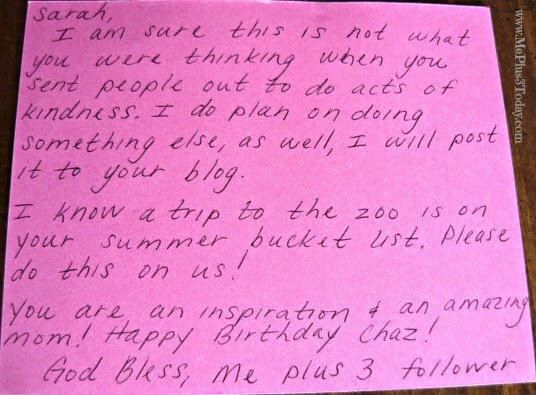 Sarah,
I am sure this is not what
you were thinking when you
sent people out to do acts of
kindness. I do plan on doing
something else, as well, I will post
it to your blog.
I know a trip to the zoo is on
your summer bucket list. Please
do this on us!
You are an inspiration & an amazing
mom! Happy Birthday Chaz!
God Bless, Me plus 3 follower
www.MePlus3Today.com